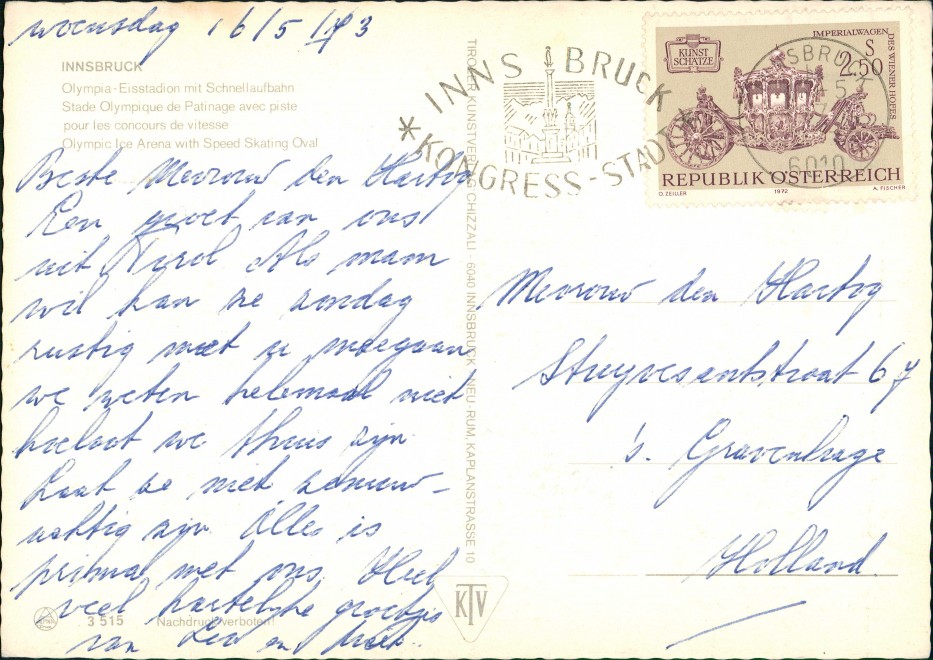 woensdag 16/5 1973
INNSBRUCK
Olympia-Eisstadion mit Schnellaufbahn
Stade Olympique de Patinage avec piste
pour les concours de vitesse
Olympic Ice Arena with Speed Skating Oval
Beste Mevrouw den Hartog
Een groet van ons
uit Tirol Als mam
wil kan ze zondag
rustig met u meegaan
we weten helemaal niet
hoelaat we thuis zijn
Laat ze niet zenuw-
achtig zijn Alles is
prima met ons. Heel
veel hartelijke groetjes
van Leo en
3 515 Nachdruck verboten!
TIROLER KUNSTVERLAG CHIZZALI · 6040 INNSBRUCK, NEU-RUM, KAPLANSTRASSE 10
KTV
INNSBRUCK
*KONGRESS-STADT*
6010
KUNST
SCHÄTZE
IMPERIALWAGEN
DES WIENER HOFES
S
2.50
REPUBLIK ÖSTERREICH
O. ZEILLER 1972 A. FISCHER
Mevrouw den Hartog
Stuyvesantstraat 67
's. Gravenhage
Holland.